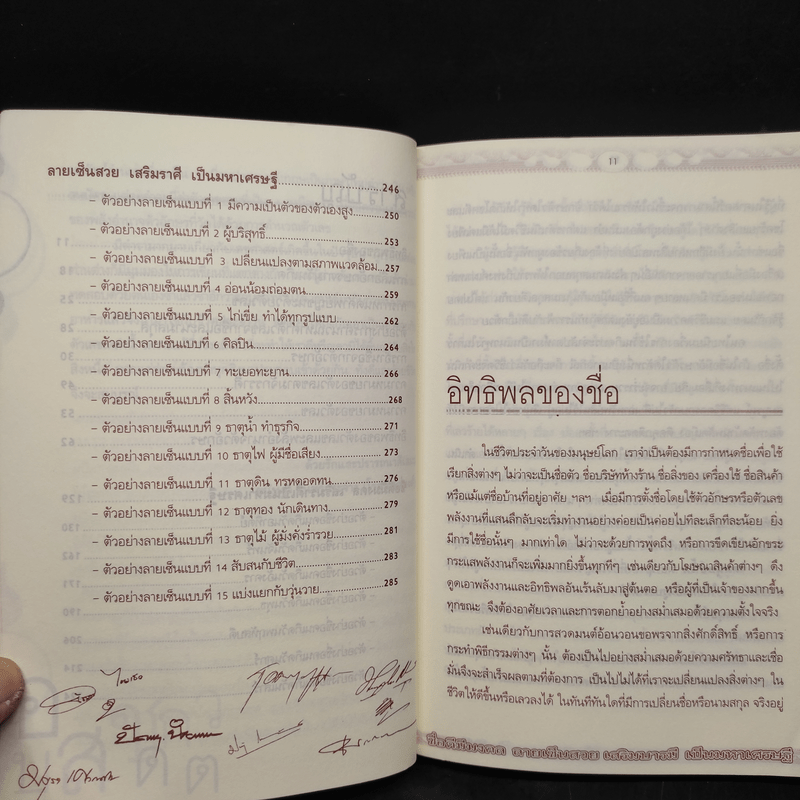 ลายเซ็นสวย เสริมราศี เป็นมหาเศรษฐี......................246
– ตัวอย่างลายเซ็นแบบที่ 1 มีความเป็นตัวของตัวเองสูง......250
– ตัวอย่างลายเซ็นแบบที่ 2 ผู้บริสุทธิ์......................253
– ตัวอย่างลายเซ็นแบบที่ 3 เปลี่ยนแปลงตามสภาพแวดล้อม...257
– ตัวอย่างลายเซ็นแบบที่ 4 อ่อนน้อมถ่อมตน................259
– ตัวอย่างลายเซ็นแบบที่ 5 ไก่เขี่ย ทำได้ทุกรูปแบบ..........262
– ตัวอย่างลายเซ็นแบบที่ 6 ศิลปิน..........................264
– ตัวอย่างลายเซ็นแบบที่ 7 ทะเยอทะยาน...................266
– ตัวอย่างลายเซ็นแบบที่ 8 สิ้นหวัง.........................268
– ตัวอย่างลายเซ็นแบบที่ 9 ธาตุน้ำ ทำธุรกิจ................271
– ตัวอย่างลายเซ็นแบบที่ 10 ธาตุไฟ ผู้มีชื่อเสียง.............273
– ตัวอย่างลายเซ็นแบบที่ 11 ธาตุดิน ทรหดอดทน............276
– ตัวอย่างลายเซ็นแบบที่ 12 ธาตุทอง นักเดินทาง............279
– ตัวอย่างลายเซ็นแบบที่ 13 ธาตุไม้ ผู้มั่งคั่งร่ำรวย...........281
– ตัวอย่างลายเซ็นแบบที่ 14 สับสนกับชีวิต..................283
– ตัวอย่างลายเซ็นแบบที่ 15 แบ่งแยกกับวุ่นวาย.............285
11
อิทธิพลของชื่อ
ในชีวิตประจำวันของมนุษย์โลก เราจำเป็นต้องมีการกำหนดชื่อเพื่อใช้
เรียกสิ่งต่างๆ ไม่ว่าจะเป็นชื่อตัว ชื่อบริษัทห้างร้าน ชื่อสิ่งของ เครื่องใช้ ชื่อสินค้า
หรือแม้แต่ชื่อบ้านที่อยู่อาศัย ฯลฯ เมื่อมีการตั้งชื่อโดยใช้ตัวอักษรหรือตัวเลข
พลังงานที่แสนลึกลับจะเริ่มทำงานอย่างค่อยเป็นค่อยไปทีละเล็กทีละน้อย ยิ่ง
มีการใช้ชื่อนั้นๆ มากเท่าใด ไม่ว่าจะด้วยการพูดถึง หรือการขีดเขียนอักขระ
กระแสพลังงานก็จะเพิ่มมากยิ่งขึ้นทุกทีๆ เช่นเดียวกับโฆษณาสินค้าต่างๆ ดึง
ดูดเอาพลังงานและอิทธิพลอันเร้นลับมาสู่ต้นตอ หรือผู้ที่เป็นเจ้าของมากขึ้น
ทุกขณะ จึงต้องอาศัยเวลาและการตอกย้ำอย่างสม่ำเสมอด้วยความตั้งใจจริง
เช่นเดียวกับการสวดมนต์อ้อนวอนขอพรจากสิ่งศักดิ์สิทธิ์ หรือการ
กระทำพิธีกรรมต่างๆ นั้น ต้องเป็นไปอย่างสม่ำเสมอด้วยความศรัทธาและเชื่อ
มั่นจึงจะสำเร็จผลตามที่ต้องการ เป็นไปไม่ได้ที่เราจะเปลี่ยนแปลงสิ่งต่างๆ ใน
ชีวิตให้ดีขึ้นหรือเลวลงได้ ในทันทีทันใดที่มีการเปลี่ยนชื่อหรือนามสกุล จริงอยู่
ลายเซ็นสวย เสริมบารมี เป็นมหาเศรษฐี